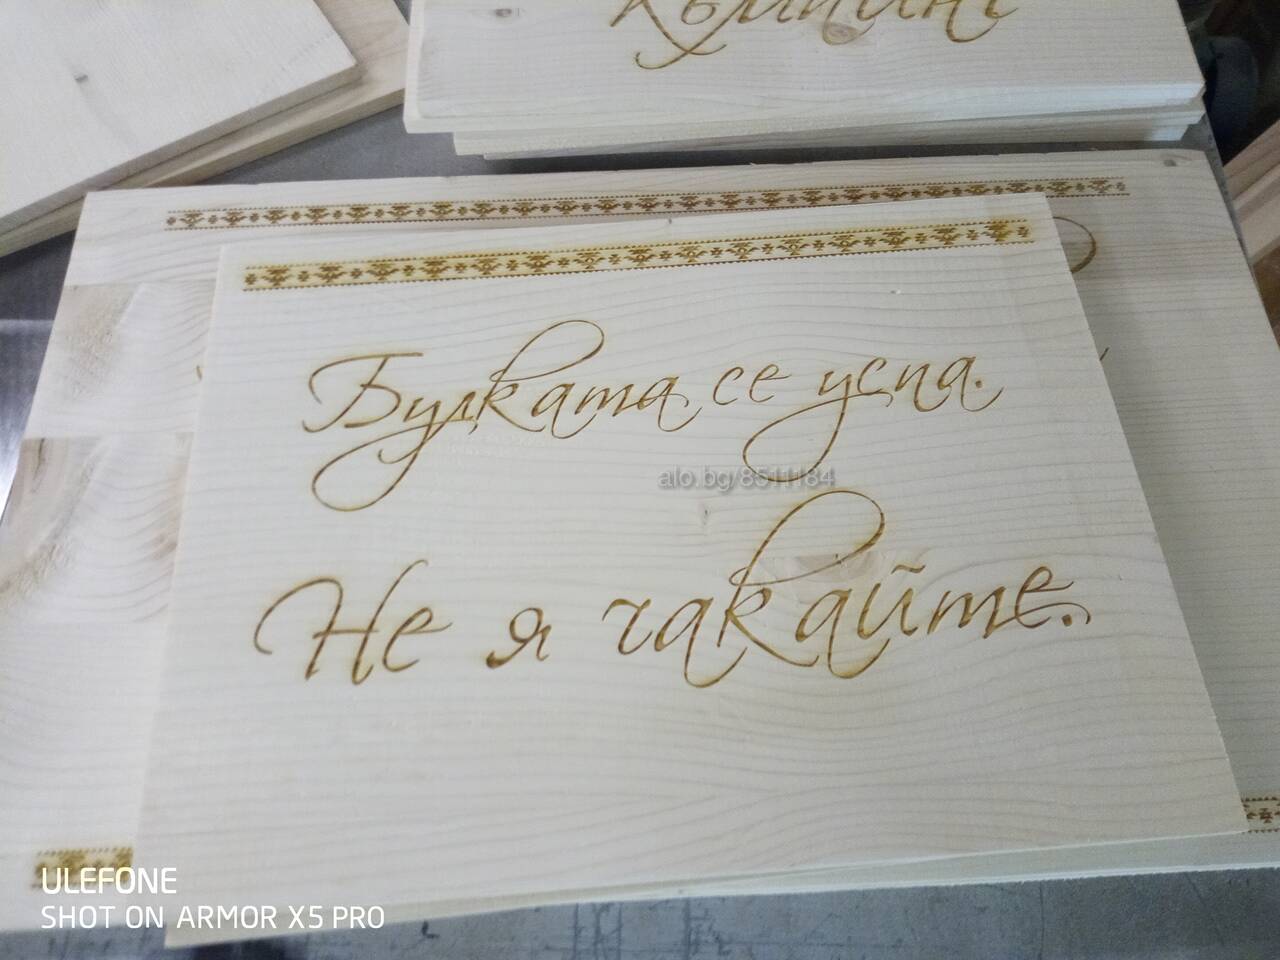 Къмпинг
Булката се успа.
alo.bg/8511184
Не я чакайте.
ULEFONE
SHOT ON ARMOR X5 PRO